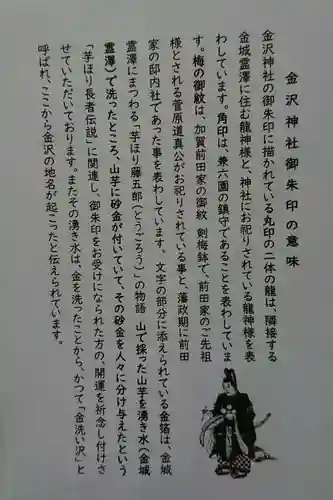 金沢神社御朱印の意味
金沢神社の御朱印に描かれている丸印の二体の龍は、隣接する
金城霊澤に住む龍神様と、神社にお祀りされている龍神様を表
わしています。角印は、兼六園の鎮守であることを表わしていま
す。梅の御紋は、加賀前田家の御紋 剣梅鉢で、前田家のご先祖
様とされる菅原道真公がお祀りされている事と、藩政期に前田
家の邸内社であった事を表わしています。文字の部分に添えられている金箔は、金城
霊澤にまつわる「芋ほり藤五郎(とうごろう)」の物語 山で採った山芋を湧き水(金城
霊澤)で洗ったところ、山芋に砂金が付いていて、その砂金を人々に分け与えたという
「芋ほり長者伝説」に関連し、御朱印をお受けになられた方の、開運を祈念し付けさ
せていただいております。またその湧き水は、金を洗ったことから、かつて「金洗い沢」と
呼ばれ、ここから金沢の地名が起こったと伝えられています。